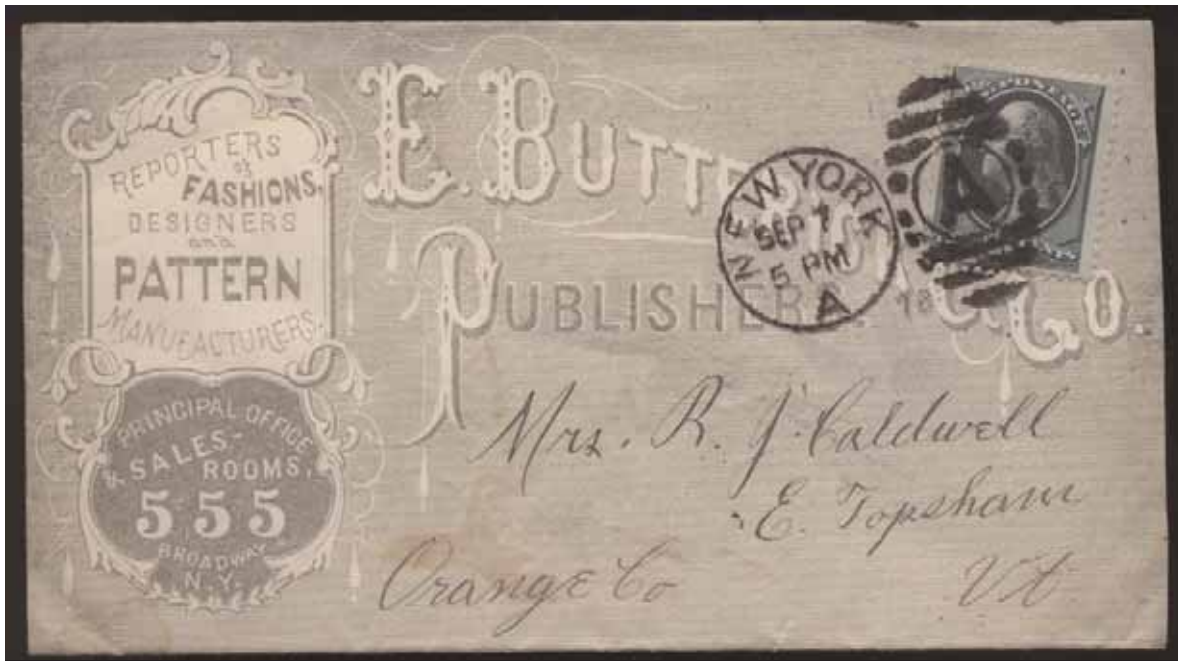 REPORTERS
of
FASHIONS,
DESIGNERS
and
PATTERN
MANUFACTURERS.
PRINCIPAL OFFICE
& SALES-
ROOMS,
555
BROADWAY
N.Y.
E. BUTTE
& CO.
PUBLISHERS.
18
NEW YORK
SEP 7
5 PM
A
POSTAGE
A
CENTS
Mrs. R. J. Caldwell
E. Topsham
Orange Co Vt.